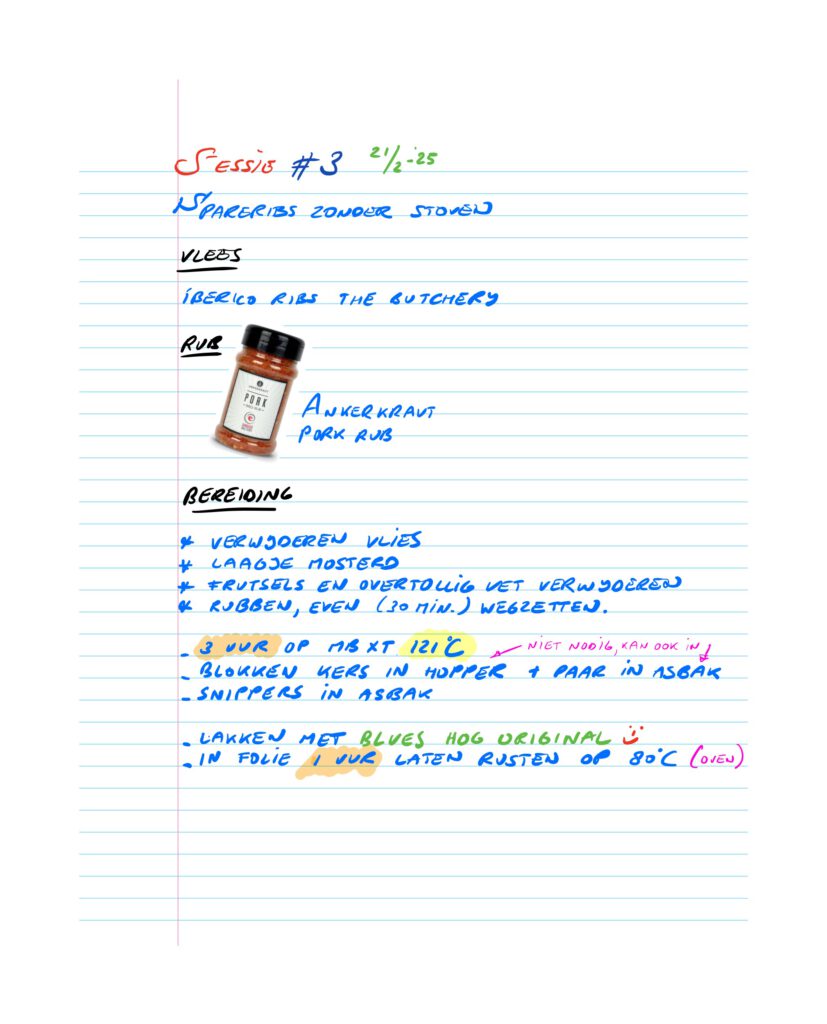 SESSIE #3 21/2-'25
SPARERIBS ZONDER STOVEN
VLEES
IBERICO RIBS THE BUTCHERY
RUB
PORK
ANKERKRAUT
PORK RUB
BEREIDING
* VERWIJDEREN VLIES
* LAAGJE MOSTERD
* FRUTSELS EN OVERTOLLIG VET VERWIJDEREN
* RUBBEN, EVEN (30 MIN.) WEGZETTEN.
- 3 UUR OP MB XT 121°C NIET NODIG, KAN OOK IN
- BLOKKEN KERS IN HOPPER + PAAR IN ASBAK
- SNIPPERS IN ASBAK
- LAKKEN MET BLUES HOG ORIGINAL
- IN FOLIE 1 UUR LATEN RUSTEN OP 80°C (OVEN)